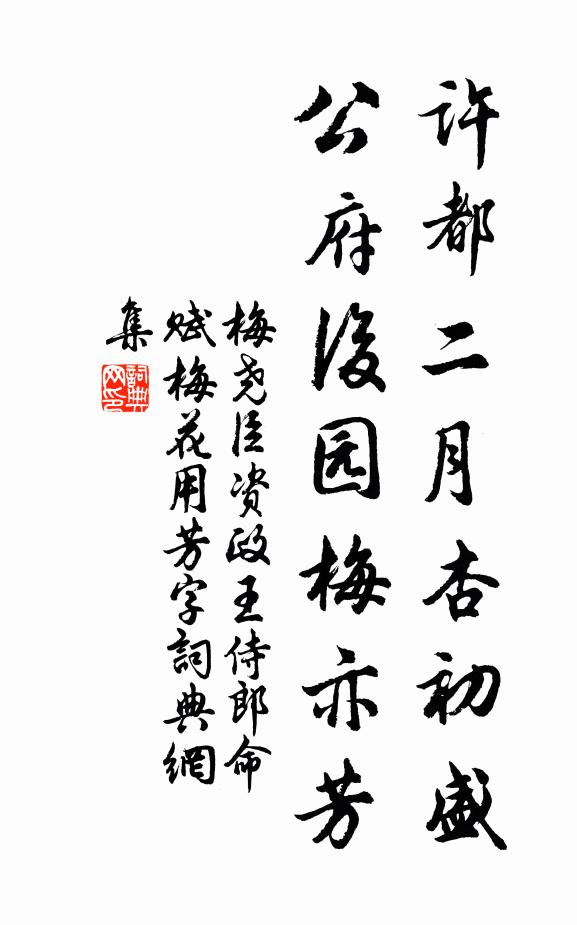 许都二月杏初盛
公府後园梅亦芳
梅尧臣资政王侍郎命
赋梅花用芳字詞典網
集
詞典
网印